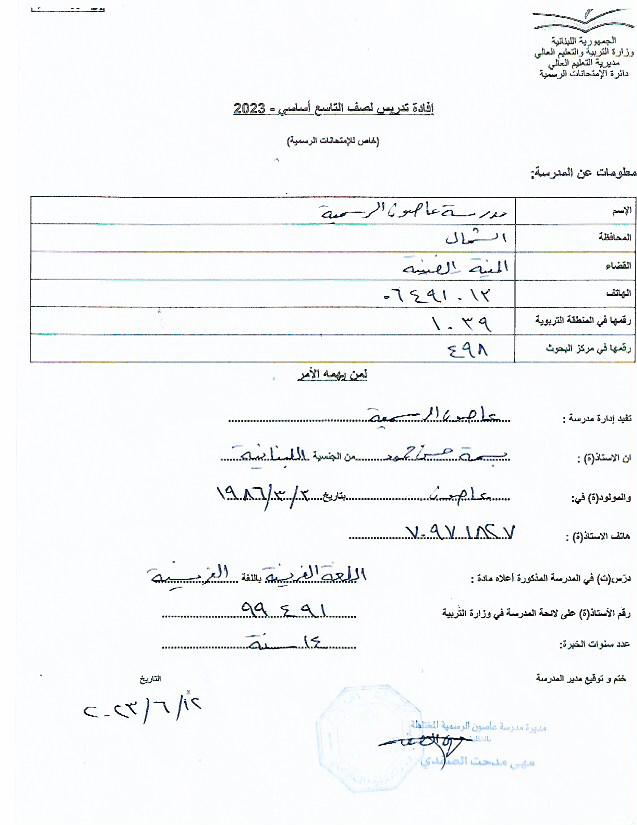 الجمهورية اللبنانية
وزارة التربية والتعليم العالي
مديرية التعليم العالي
دائرة الإمتحانات الرسمية
إفادة تدريس لصف التاسع أساسي - 2023
(خاص للإمتحانات الرسمية)
معلومات عن المدرسة:
الإسم مدرسة عاصون الرسمية
المحافظة الشمال
القضاء المنية الضنية
الهاتف ٠٦٤٩١٠١٢
رقمها في المنطقة التربوية ١٠٣٩
رقمها في مركز البحوث ٤٩٨
لمن يهمه الأمر
تفيد إدارة مدرسة : عاصون الرسمية
ان الاستاذ(ة) : بسمة حسن حمود من الجنسية اللبنانية
والمولود(ة) في: عاصون بتاريخ ١٩٨٦/٣/٢
هاتف الاستاذ(ة) : ٧٠٩٧١٨٢٧
درّس(ت) في المدرسة المذكورة أعلاه مادة : اللغة الفرنسية باللغة الفرنسية
رقم الأستاذ(ة) على لائحة المدرسة في وزارة التربية ٩٩٤٩١
عدد سنوات الخبرة: ١٤ سنة
ختم و توقيع مدير المدرسة التاريخ
٢٠٢٣/٦/١٢
مديرة مدرسة عاصون الرسمية المختلطة
مهى مدحت الصمدي